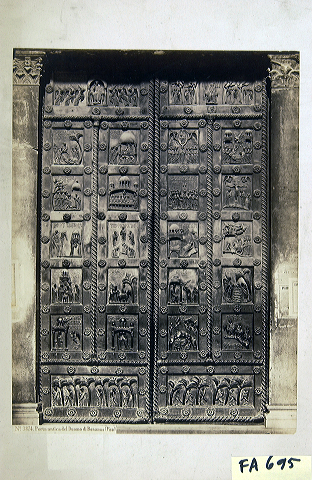 Porta antica del Duomo di (Pisa)
FA 695